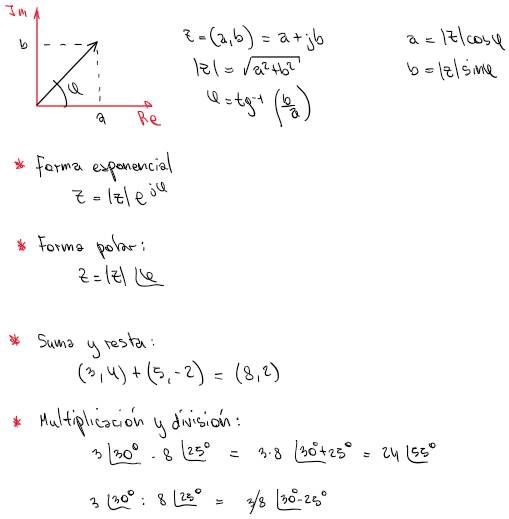 Im
b
φ
a
Re
z = (a,b) = a + jb
|z| = √(a²+b²)
φ = tg⁻¹ (b/a)
a = |z| cosφ
b = |z| sinφ
* Forma esponencial
z = |z| e^jφ
* Forma polar:
z = |z| ∠φ
* Suma y resta:
(3,4) + (5,-2) = (8,2)
* Multiplicación y división:
3 ∠30° · 8 ∠25° = 3·8 ∠30°+25° = 24 ∠55°
3 ∠30° : 8 ∠25° = 3/8 ∠30°-25°